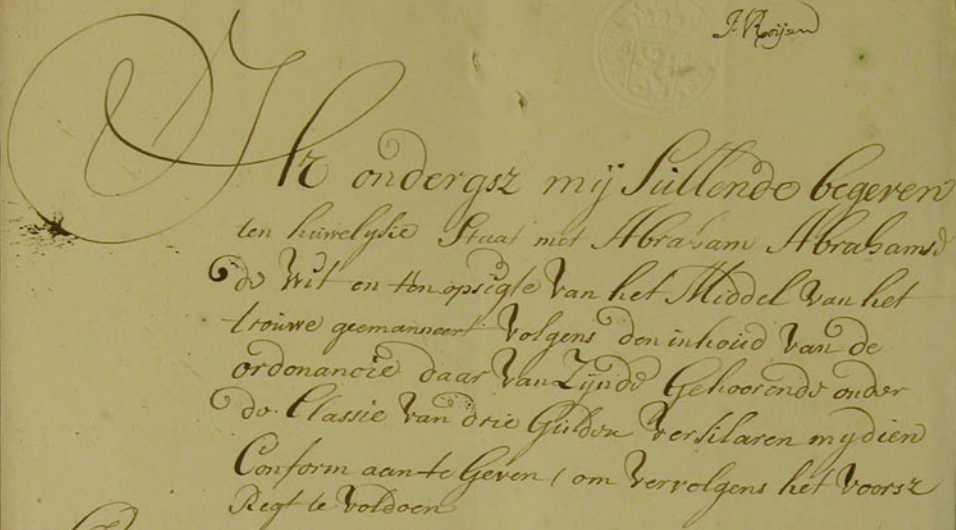 J: Rooijen
Ik ondergsz mij Sullende begeven
ten huwelyke Staat met Abraham Abrahamsz
de Wit en ten opsigte van het Middel van het
trouwe geemanneert volgens den inhoud van de
ordonancie daar van Zijnde Gehoorende onder
de Classie van drie Gulden verklaren mydien
Conform aan te Geven / om vervolgens het voorsz
Regt te voldoen